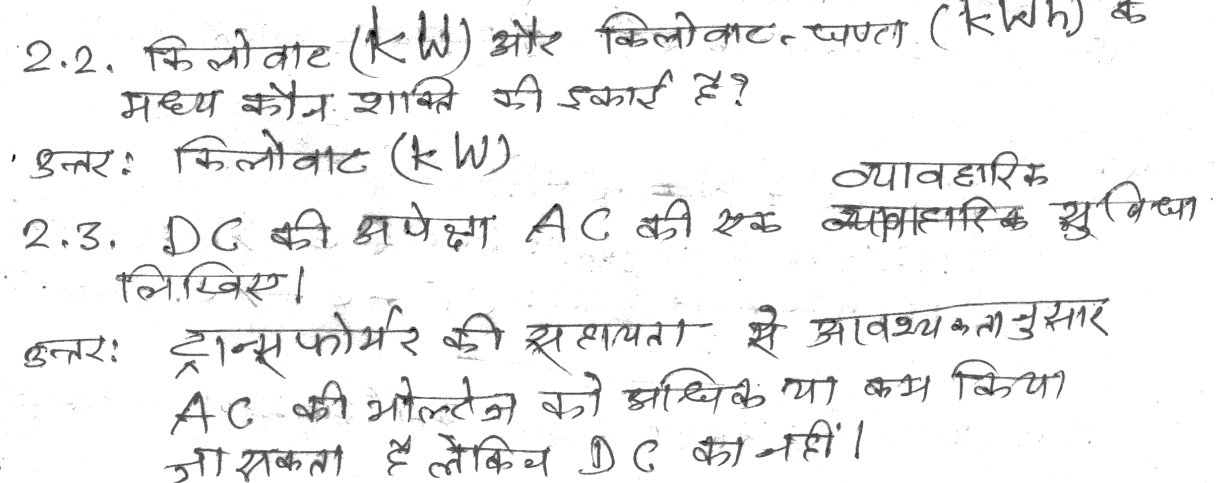 2.2. किलोवाट (kW) और किलोवाट-घण्टा (kWh) के
मध्य कौन शक्ति की इकाई है?
उत्तर: किलोवाट (kW)
व्यावहारिक
2.3. DC की अपेक्षा AC की एक व्यावाहारिक सुविधा
लिखिए।
उत्तर: ट्रान्सफोर्मर की सहायता से आवश्यकतानुसार
AC की भोल्टेज को अधिक या कम किया
जा सकता है लेकिन DC का नहीं।